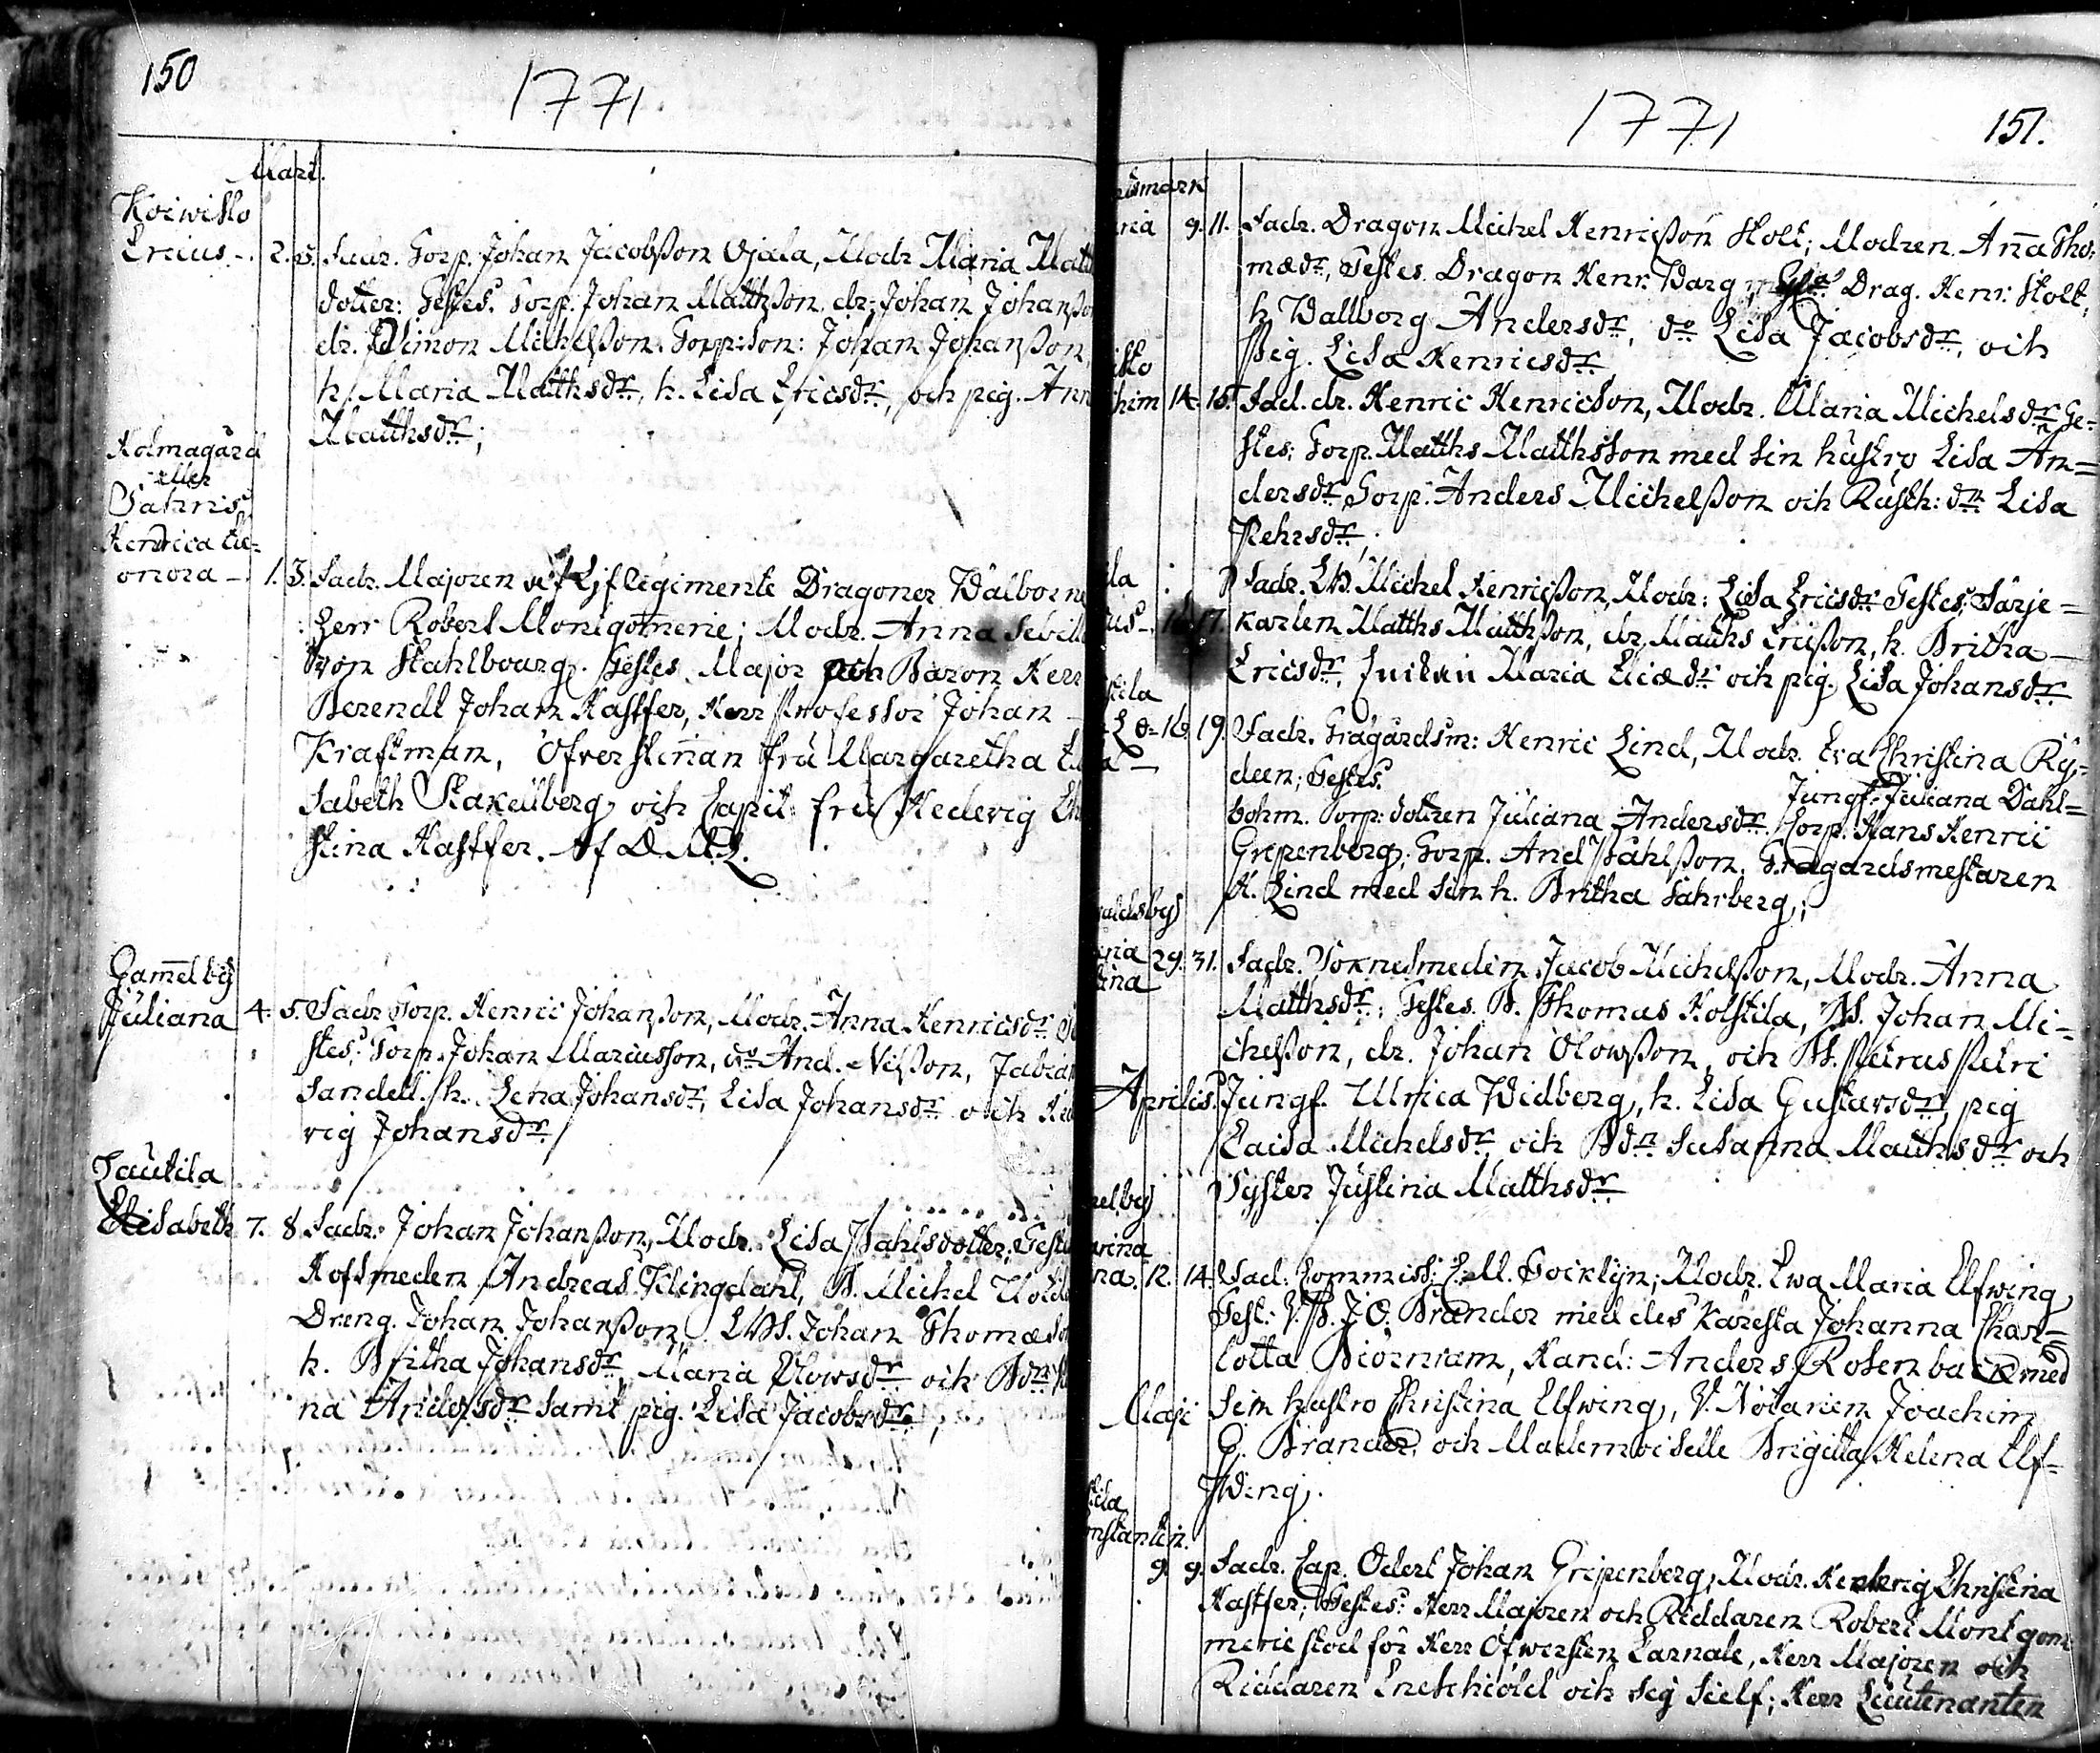 150
1771
Mart.
Koiwisto
Ericus - 2. 5. Fadr. Torp. Johan Jacobsson Ojala, Modr Maria Matth
dotter: Testes. Torp. Johan Matthsson, dr. Johan Johansso
dr. Simon Michelsson. Torp: son: Johan Johansson,
h. Maria Matthsdr, h. Lisa Ericsdr, och pig. Ann
Matthsdr;
Holmagård
eller
Saharis
Henrica Ele-
onora - 1. 3. Fadr. Majoren vid Lif Regimente Dragoner Wälborne
Herr Robert Montgomerie; Modr. Anna Sebill
von Stahlbourg. Testes. Major och Baron Herr
Berendt Johan Hastfer, Herr Professor Johan
Kraftman, Öfverstinnan fru Margaretha Eli
sabeth Stakelberg och Capit: fru Hedevig Ch
stina Hastfer. Af D. M. L.
Gamelby
Juliana 4. 5. Fadr Torp. Henric Johansson, Modr. Anna Henricsdr Te
stes: Torp. Johan Marcusson, do And. Nilsson, Fabian
Sandell. h. Lena Johansdr, Lisa Johansdr och Hed
vig Johansdr
Tautila
Elisabeth 7. 8 Fadr. Johan Johansson, Modr. Lisa Påhlsdotter, Teste
Hofsmeden Andreas Klingdahl, B. Michel
Dreng. Johan Johansson. Johan Thomæso
h. Britha Johansdr, Maria Olowsdr och Bdr
na Andersdr samt pig. Lisa Jacobsdr,
1771
151.
usmark
ria 9. 11. Fadr. Dragon Michel Henricsson Stolt; Modren. Anna Tho:
mædr, Testes. Dragon Henr. Warg, Drag. Henr. Stolt,
h. Wallborg Andersdr, do Lisa Jacobsdr, och
Pig. Lisa Henricsdr
isto
him 14. 15. Fad. dr. Henric Henricson, Modr. Maria Michelsdr Te-
stes: Torp. Matths Matthsson med sin hustro Lisa An-
dersdr, Torp. Anders Michelsson och Rusth: dr Lisa
Pehrsdr,
ila
us 17. Fadr. Michel Henricsson, Modr: Lisa Ericsdr Testes: Färje-
karlen Matths Matthsson, dr. Matths Ericsson, h. Britha
Ericsdr, Enkan Maria dr och pig. Lisa Johansdr
tila
16. 19. Fadr. Trägårdsm: Henric Lind, Modr. Eva Christina Ry-
deen; Testes. Jungf. Juliana Dahl-
bohm. Torp: dottren Juliana Andersdr. Corp. Hans Henric
Gripenberg; Torp. And Påhlsson. Trägårdsmestaren
H. Lind med sin h. Britha Sahrberg;
aldsby
ria
tina 29. 31. Fadr. Soknesmeden Jacob Michelsson, Modr. Anna
Matthsdr; Testes. B. Thomas Holstila, B. Johan Mi-
chelsson, dr. Johan Olowsson, och B. Petrus Petri
Aprilis. Jungf. Ulrica Widberg, h. Lisa Gustavsdr, pig
Caisa Michelsdr och Bdr Susanna Matthsdr och
Syster Justina Matthsdr
elby
arina
na. 12. 14. Fad. Commiss. C. M. Tocklin; Modr. Ewa Maria Elfwing
Test: V. P. J. O. Brander med des Käresta Johanna Char-
lotta Biörnram, Hand: Anders Rosenback med
Maji sin hustro Christina Elfwing, V. Notarien Joachim
G. Brander, och Mademoiselle Brigitta Helena Elf-
wing.
tila
onstantin.
9. 9. Fadr. Cap. Odert Johan Gripenberg, Modr. Hedvig Christina
Hastfer; Testes: Herr Majoren och Riddaren Robert Montgom
merie stod för Herr Öfwersten Carnale, Herr Majoren och
Riddaren Enehchiöld och sig sielf; Herr Lieutenanten